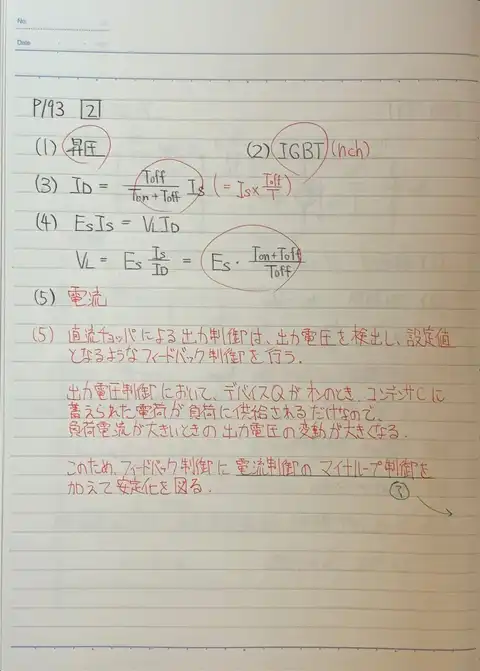 No.
Date
P193 [2]
(1) 昇圧 (2) IGBT (nch)
(3) ID = Toff/(Ton+Toff) Is (= Is× Toff/T)
(4) EsIs = VLID
VL = Es Is/ID = Es・(Ton+Toff)/Toff
(5) 電流
(5) 直流チョッパによる出力制御は、出力電圧を検出し、設定値
となるようなフィードバック制御を行う.
出力電圧制御において、デバイスQがオンのとき、コンデンサCに
蓄えられた電荷が負荷に供給されるだけなので、
負荷電流が大きいときの出力電圧の変動が大きくなる.
このため、フィードバック制御に電流制御のマイナループ制御を
加えて安定化を図る.
?